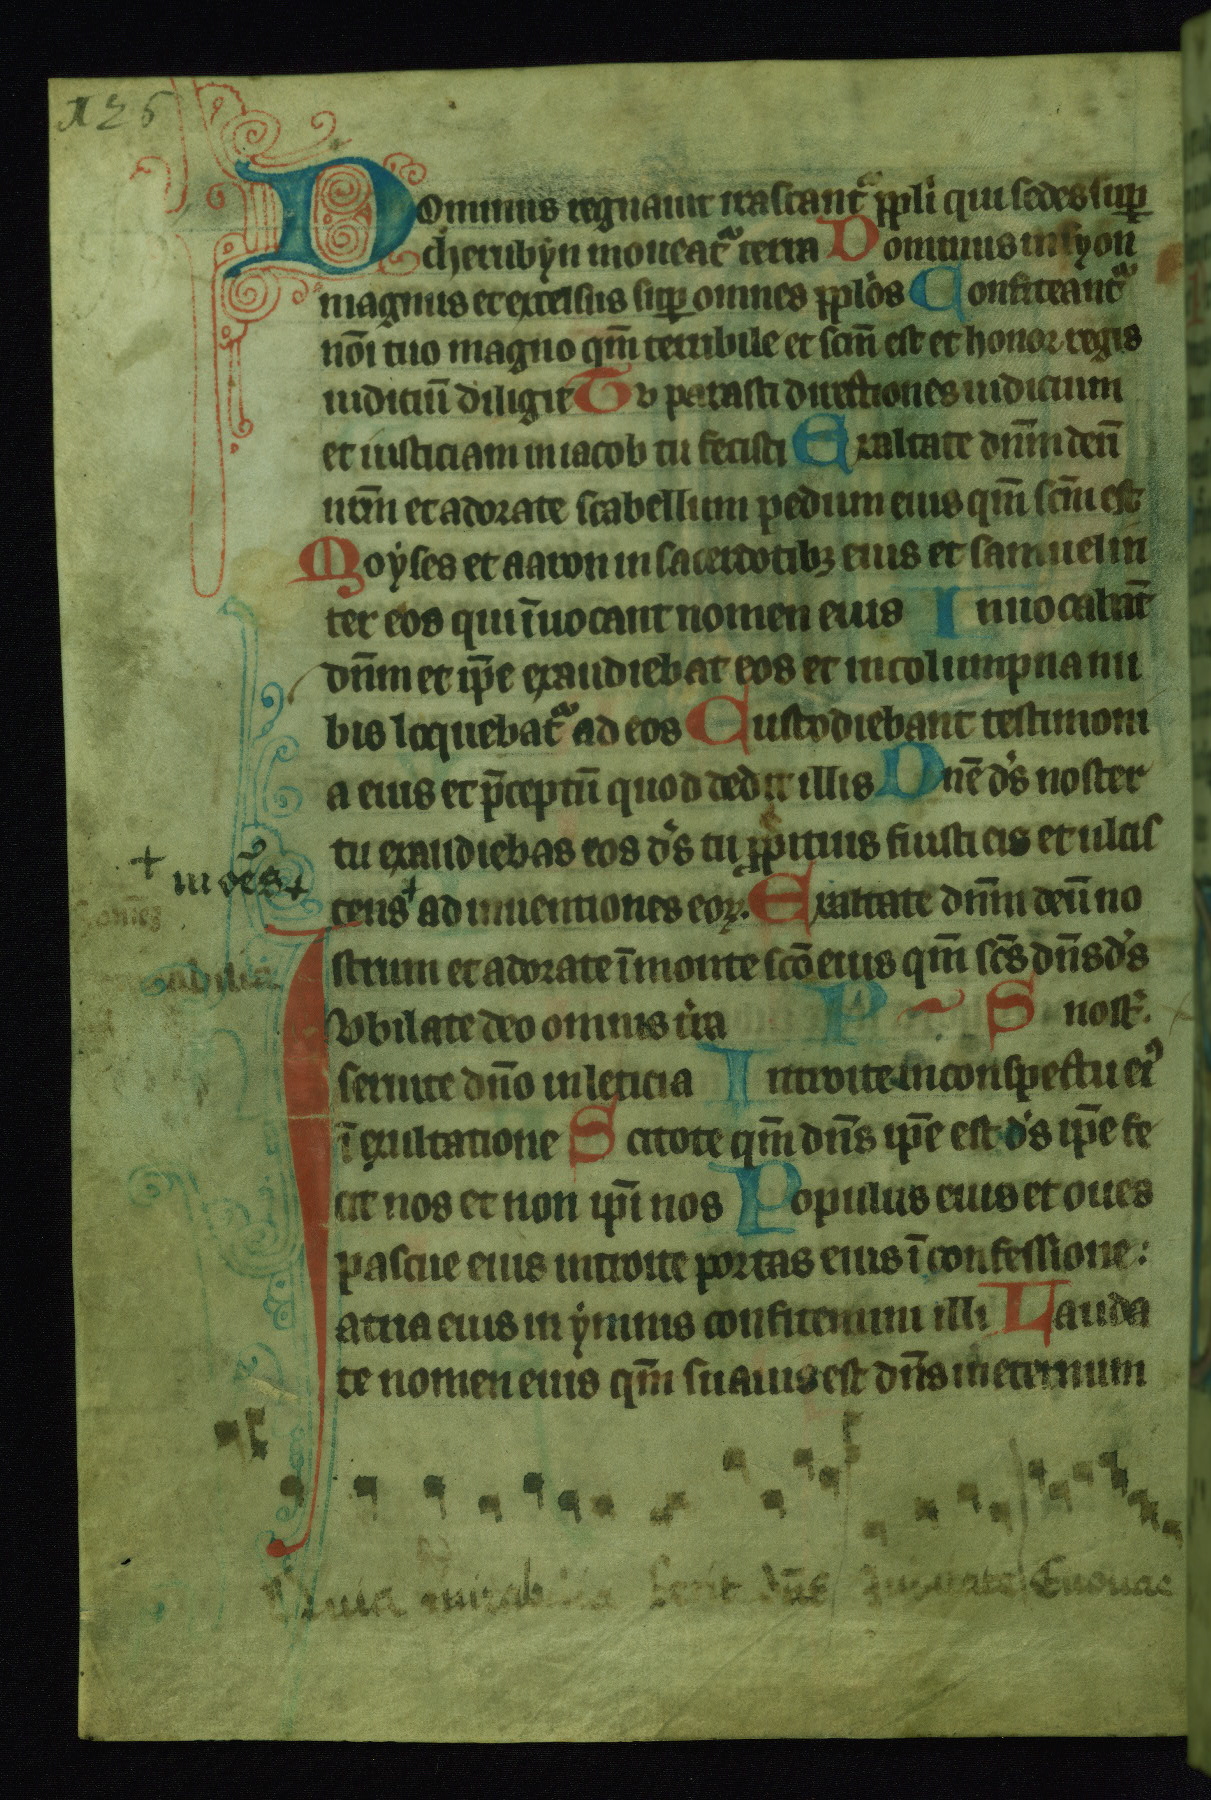 125
Dominus regnauit irascant᷑ ppl̄i qui sedes suꝑ
cherubyn moueat᷑ terra Dominus in syon
magnus et excelsus suꝑ omnes pplōs Confiteant᷑
nōi tuo magno qm̄ terribile et scm̄ est et honor regis
iudiciū diligit Tv parasti directiones iudicium
et iusticiam in iacob tu fecisti Exaltate dn̄m deū
nr̄m et adorate scabellum pedum eius qm̄ scm̄ est
Moyses et aaron in sacerdotibꝫ eius et samuel in
ter eos qui īuocant nomen eius Inuocabāt
dn̄m et ip̄e exaudiebat eos et in columpna nu
bis loquebat᷑ ad eos Custodiebant testimoni
a eius et p̄ceptū quod dedit illis Dn̄e ds̄ noster
tu exaudiebas eos ds̄ tu ꝓpitius fuisti eis et ulcis
+ in oēs +
cens + ad inuentiones eoꝝ. Exaltate dn̄m deū no
strum et adorate ī monte scō eius qm̄ scs̄ dn̄s ds̄
Ivbilate deo omnis t̄ra P S nost᷑.
seruite dn̄o in leticia Introite in conspectu eiꝰ
ī exultatione Scitote qm̄ dn̄s ip̄e est ds̄ ip̄e fe
cit nos et non ip̄i nos Populus eius et oues
pascue eius introite portas eius ī confessione:
atria eius in ymnis confitemini illi Lauda
te nomen eius qm̄ suauis est dn̄s in eternum
mirabilia fecit dn̄s Euouae